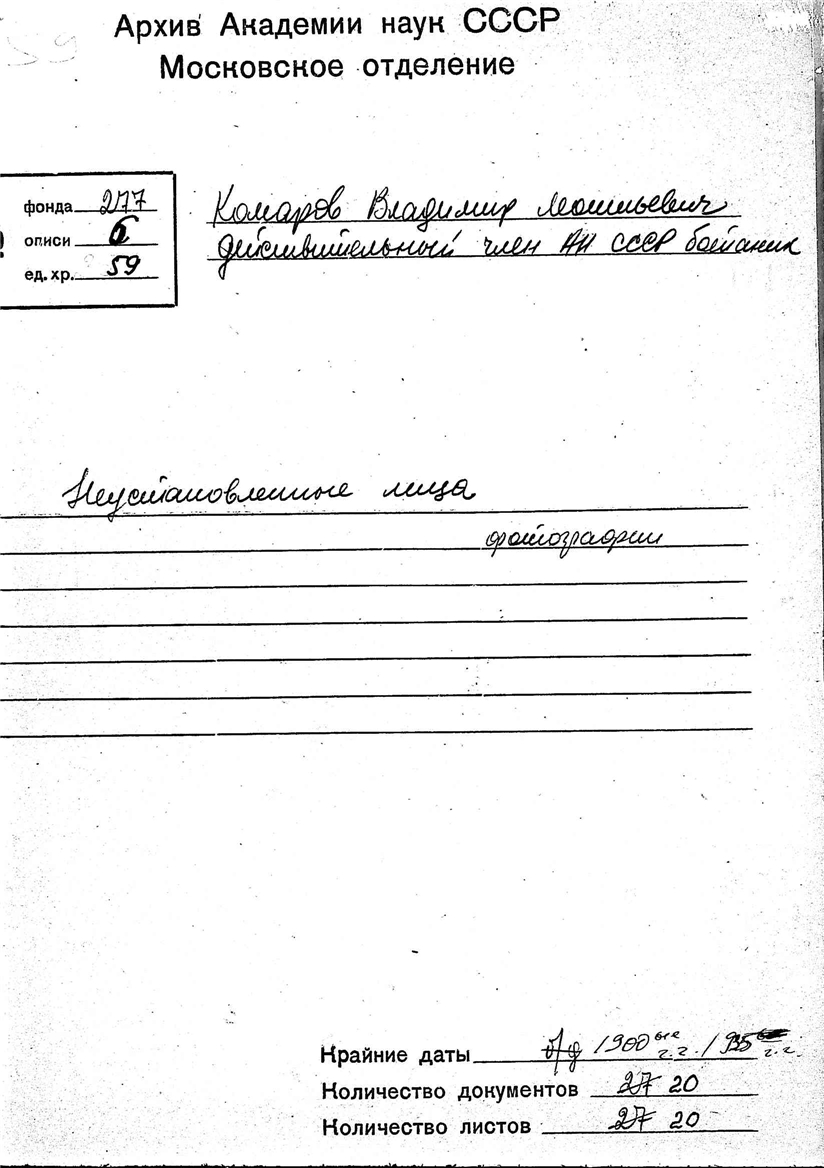 Архив Академии наук СССР
Московское отделение
фонда 277
описи 6
ед. хр. 59
Комаров Владимир Леонтьевич
действительный член АН СССР ботаник
Неустановленные лица
фотографии
Крайние даты б/д 1900ые г.г. / 935 г.г.
Количество документов 27 20
Количество листов 27 20